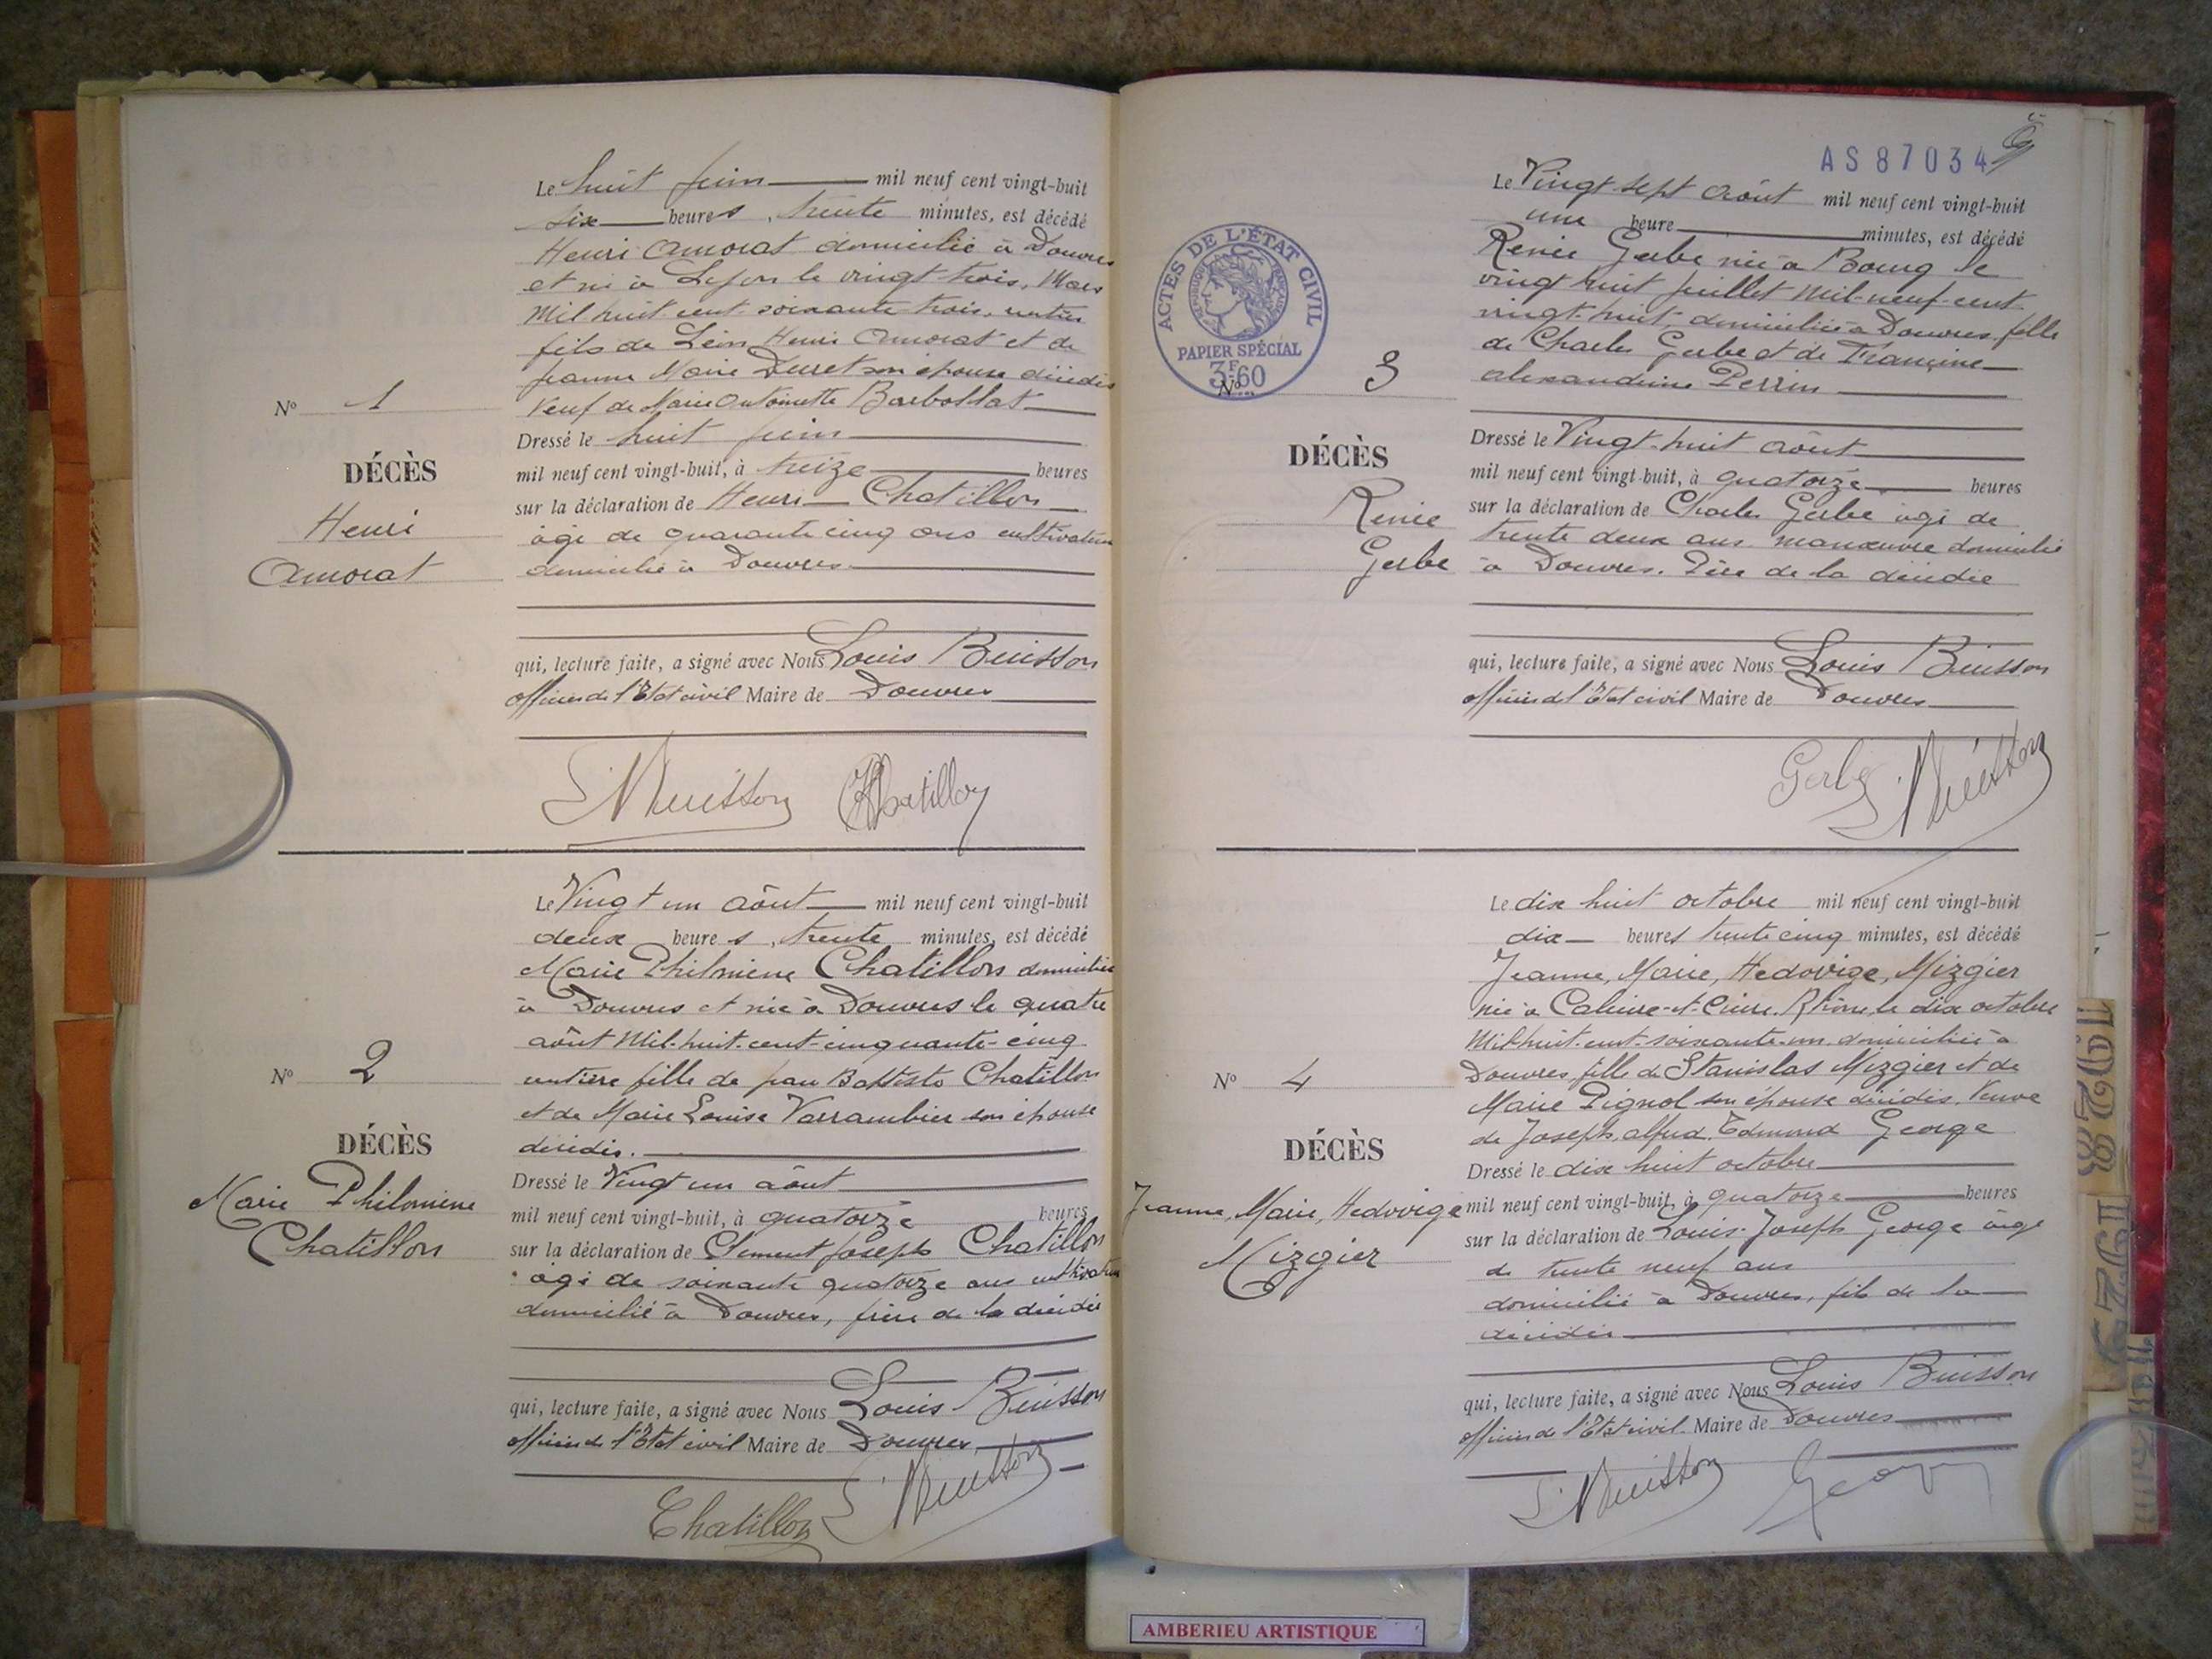 Le huit juin mil neuf cent vingt-huit
six heures, trente minutes, est décédé
Henri Amorat domicilié à Douvres
et né à Leyon le vingt trois, Mars
Mil huit cent soixante trois, rentier
fils de Léon Henri Amorat et de
Jeanne Marie Durret son épouse décédés
Veuf de Marie Antoinette Barbollat
Nº 1
Dressé le huit juin
DÉCÈS
mil neuf cent vingt-huit, à treize heures
Henri
sur la déclaration de Henri Chatillon
Amorat
âgé de quarante cinq ans cultivateur
domicilié à Douvres
qui, lecture faite, a signé avec Nous Louis Buisson
officier de l'Etat civil Maire de Douvres
L Buisson Chatillon
Le Vingt un août mil neuf cent vingt-huit
deux heures, trente minutes, est décédé
Marie Philomène Chatillon domiciliée
à Douvres et née à Douvres le quatre
août Mil-huit-cent-cinquante-cinq
rentière fille de Jean Baptiste Chatillon
et de Marie Louise Varrambier son épouse
décédés.
Nº 2
DÉCÈS
Marie Philomène
Chatillon
Dressé le Vingt un août
mil neuf cent vingt-huit, à quatorze heures
sur la déclaration de Clément Joseph Chatillon
âgé de soixante quatorze ans cultivateur
domicilié à Douvres, frère de la décédée
qui, lecture faite, a signé avec Nous Louis Buisson
officier de l'Etat civil Maire de Douvres
Chatillon L Buisson
AS87034
ACTES DE L'ÉTAT CIVIL
PAPIER SPÉCIAL
3F60
Le Vingt sept août mil neuf cent vingt-huit
une heure minutes, est décédé
Renée Gerbe née à Bourg le
vingt huit juillet Mil-neuf-cent
vingt-huit domiciliée à Douvres, fille
de Charles Gerbe et de Francine
alexandrine Perrin
Nº 3
DÉCÈS
Renée
Gerbe
Dressé le Vingt-huit août
mil neuf cent vingt-huit, à quatorze heures
sur la déclaration de Charles Gerbe âgé de
trente deux ans manœuvre domicilié
à Douvres. Père de la décédée
qui, lecture faite, a signé avec Nous Louis Buisson
officier de l'Etat civil Maire de Douvres
Gerbe L Buisson
Le dix huit octobre mil neuf cent vingt-huit
dix heures trente cinq minutes, est décédé
Jeanne, Marie, Hedovige, Mizgier
née à Caluire-et-Cuire. Rhône, le dix octobre
Mil huit-cent-soixante-un domiciliée à
Douvres, fille de Stanislas Mizgier et de
Marie Pignol son épouse décédés. Veuve
de Joseph, alfred, Edmond George
Nº 4
DÉCÈS
Jeanne, Marie, Hedovige
Mizgier
Dressé le dix huit octobre
mil neuf cent vingt-huit, à quatorze heures
sur la déclaration de Louis Joseph George âgé
de trente neuf ans
domicilié à Douvres, fils de la
décédée
qui, lecture faite, a signé avec Nous Louis Buisson
officier de l'Etat civil. Maire de Douvres
L Buisson George
AMBERIEU ARTISTIQUE